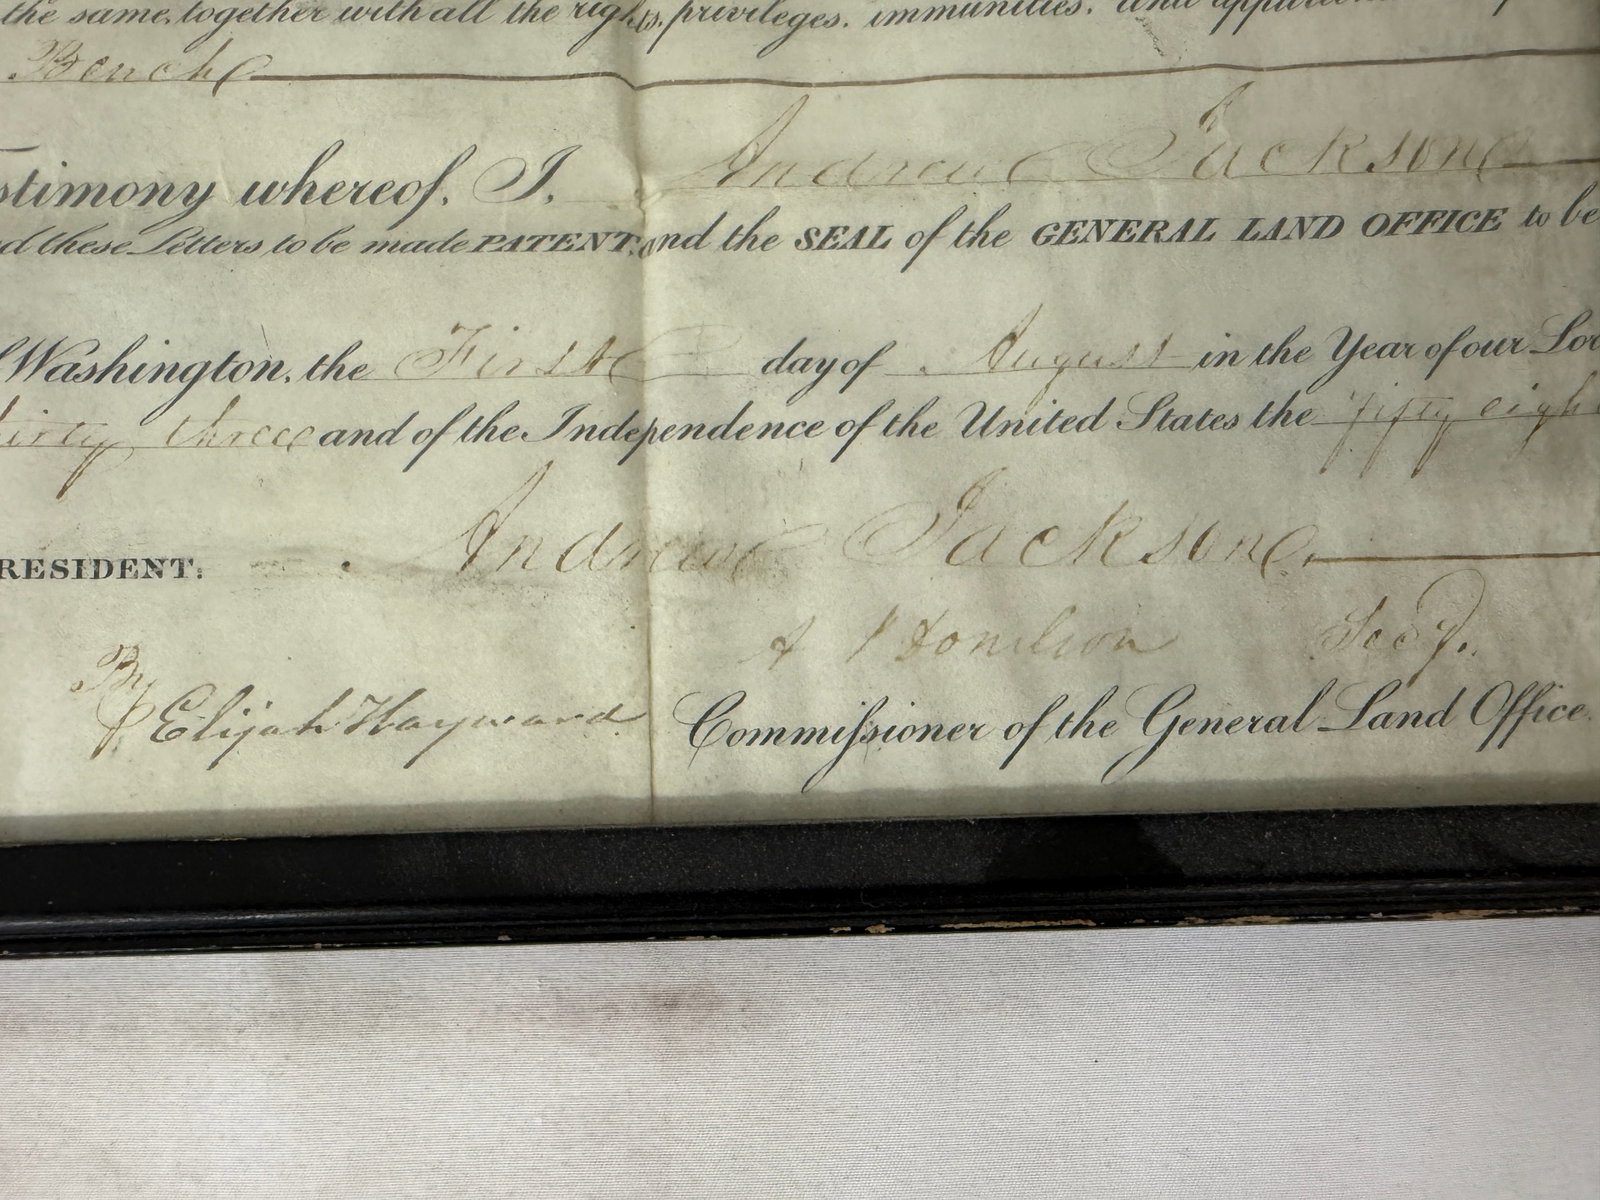 the same, together with all the rights, privileges, immunities, and
Benche
stimony whereof, I, Andrew Jackson
d these Letters to be made PATENT, and the SEAL of the GENERAL LAND OFFICE to be
Washington, the First day of August in the Year of our Lor
irty three and of the Independence of the United States the fifty eigh
RESIDENT: Andrew Jackson
A J Donelson Secy.
By Elijah Hayward Commissioner of the General Land Office.